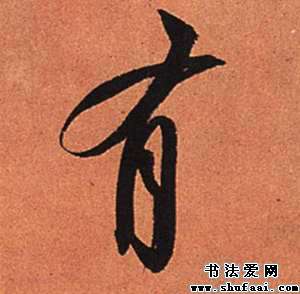 有
书法爱网
www.shufaai.com